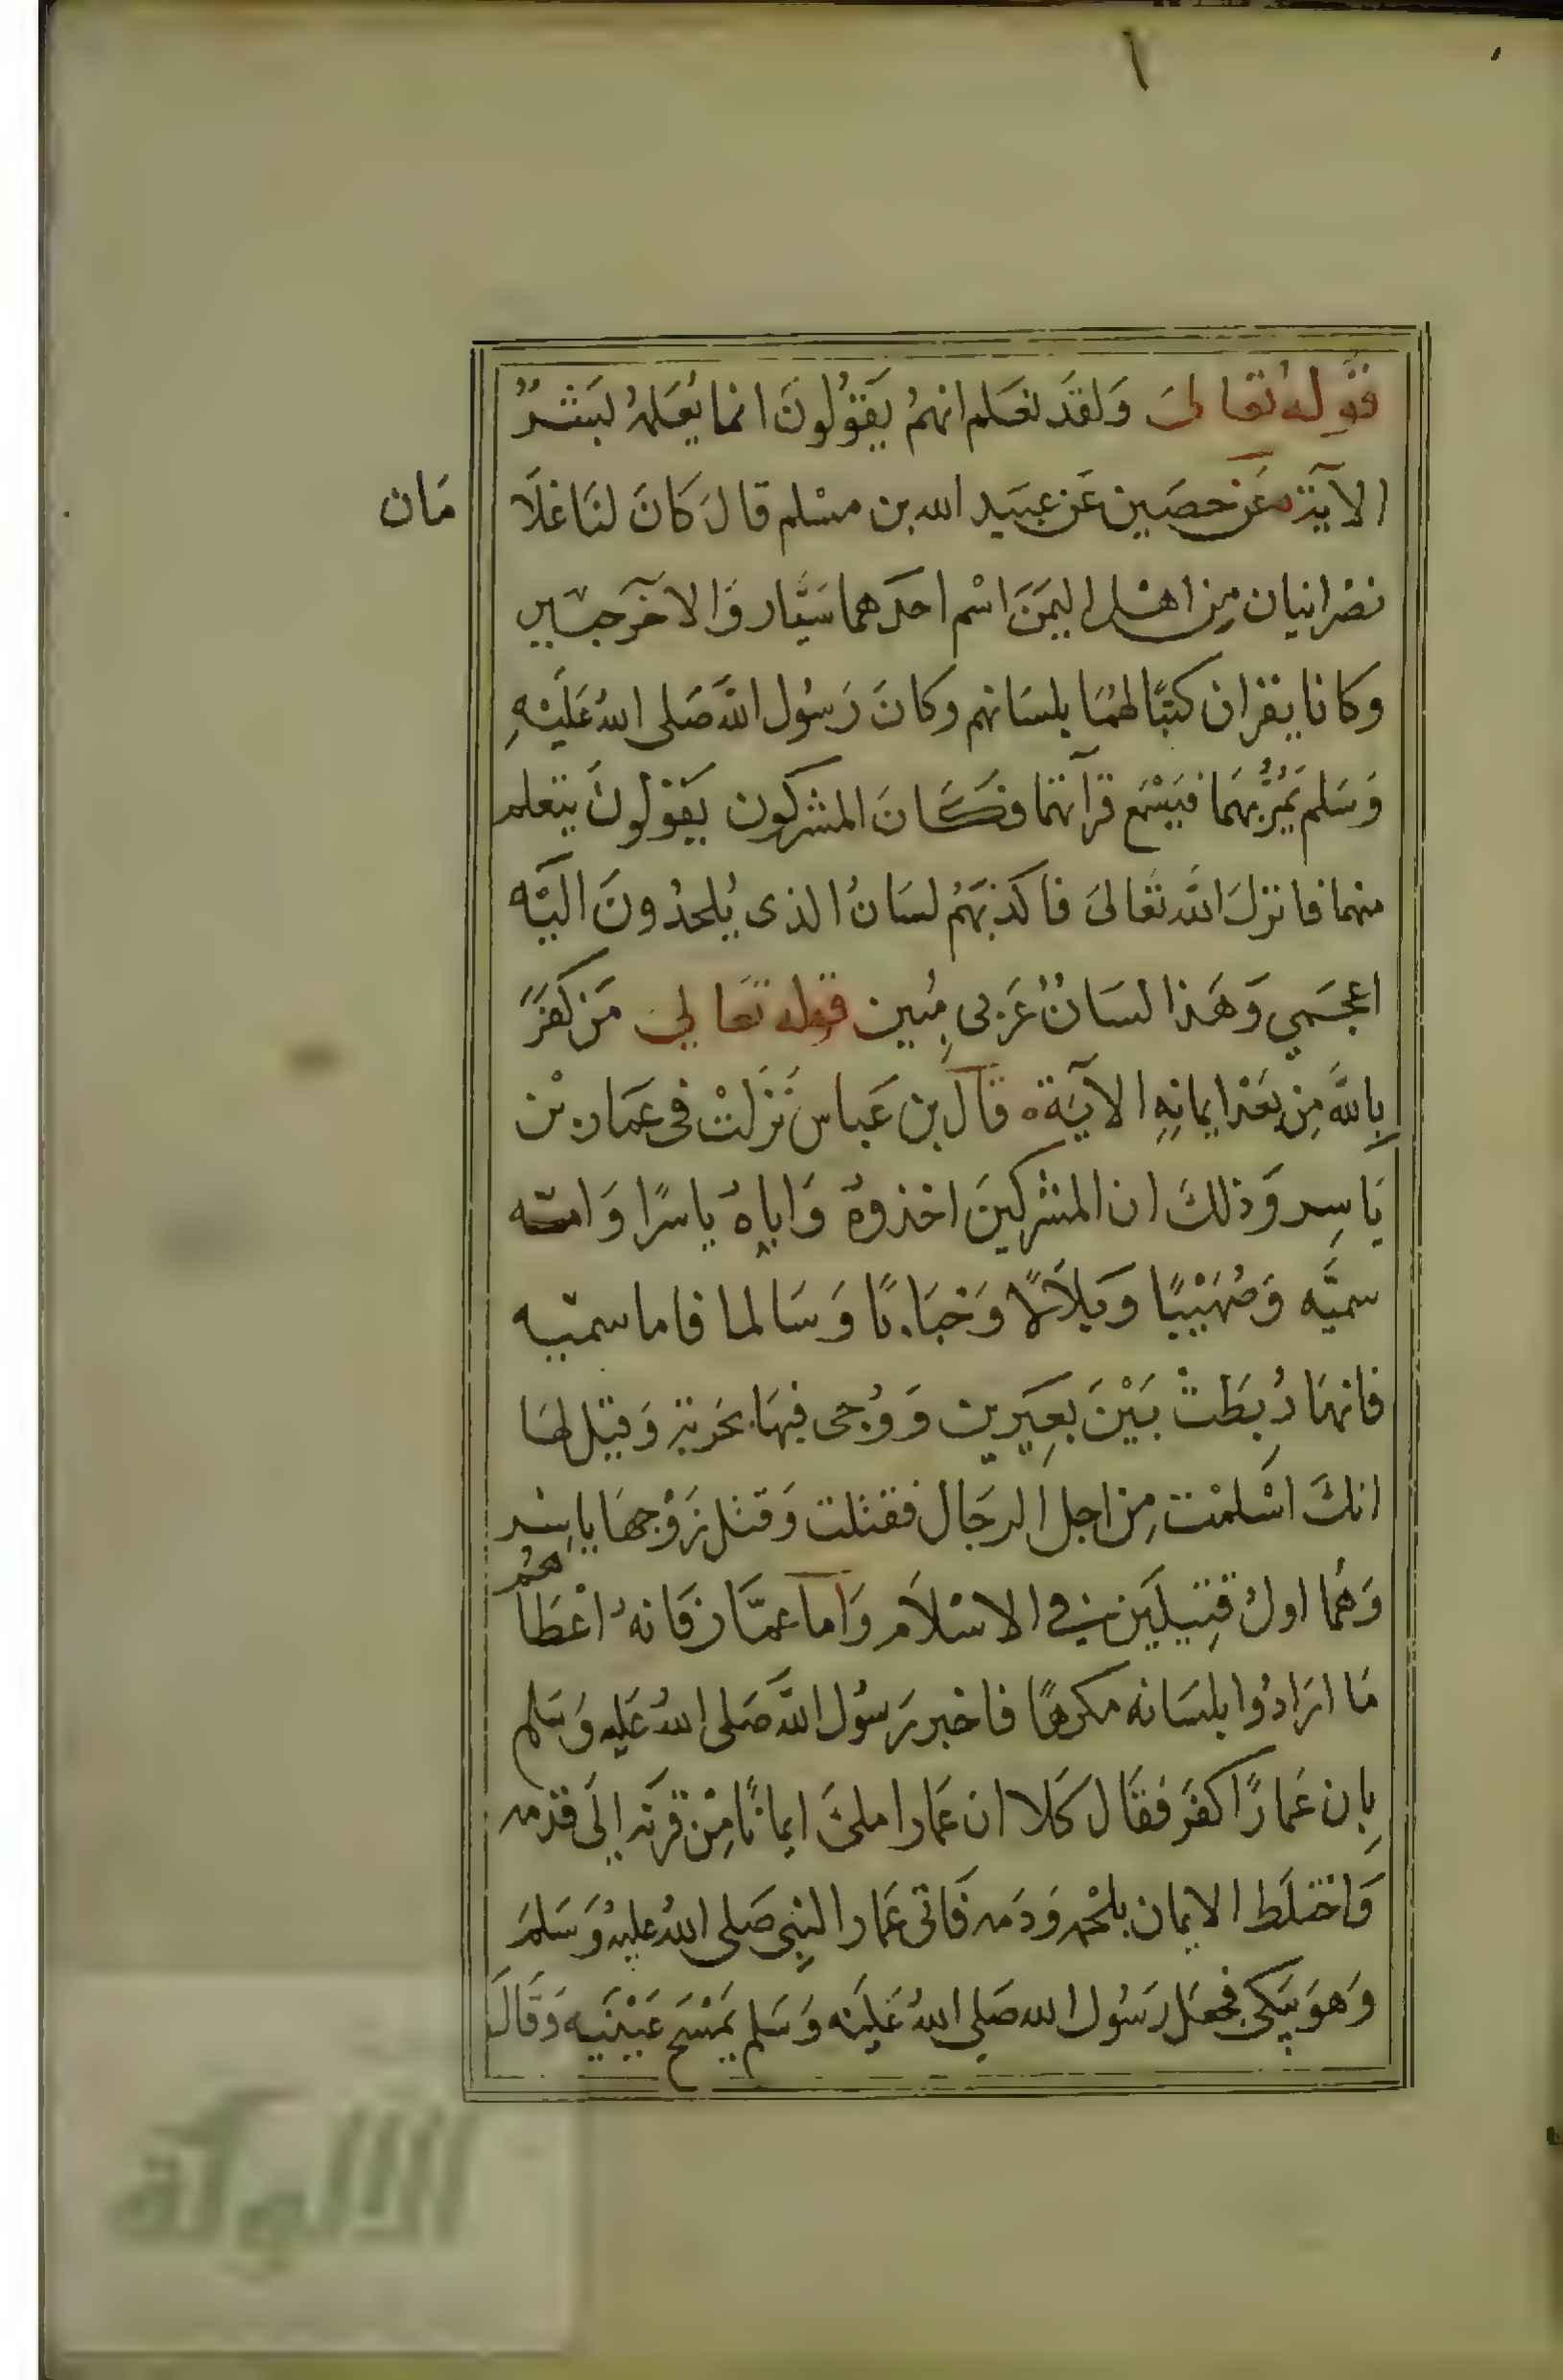 ١
قوله تعالى وَلقَد نعَلم انهمُ يَقوُلونَ انما يُعَلمهُ بَشرٌ
الآية عَن حصَين عَن عبَيد الله بن مسْلم قالَ كانَ لنَا غلَا
مَان
نصْرانيان مِن اهْل اليمَنَ اسْم احدَهما يَسَار وَالاخَر جبَير
وَكانا يقرَان كتبًا لهمُا بلسَانهم وكانَ رَسوُل اللهَ صَلى اللهُ عَليْهِ
وَسَلم يَمُرُّ بهمَا فيَسْمَع قرآتهما فكَانَ المشركون يَقوْلونَ يتعلم
منهما فانزلَ اللهَ تعَالىَ فاكذبَهَمُ لسَانُ الذى يُلحدُونَ اليَه
اعجَمي وَهَذا لسَانٌ عَربى مُبين قوله تعَالي مَن كفَرَ
بِاللهَ مِن بَعْد ايمانِهِ الآيَة قالَ بن عَباس نَزَلتْ فى عمَار بْن
يَاسِر وَذلكَ ان المشركينَ اخذوهُ وَاباهُ ياسرًا وَامّه
سميَّه وَصُهَيْبًا وَبلاَلاً وَخبَابًا وَسَالما فاما سميّه
فانهَا رُبطَتْ بَيْنَ بعِيَرين وَوُجى فيهَا بحَربة وَقيل لهَا
انكَ اسْلمْت مِن اجل الرجَال فقتلت وَقتل زوْجهَا ياسِر
وَهمُا اولُ قتِيلَين في الاسْلاَم وَاما عمّار فَانهُ اعْطَاهُم
مَا ارَادُوا بلسَانه مكرهًا فاخبر رَسوُل اللهَ صَلى اللهُ عَليه وَسَلم
بِان عَمارًا كفَر فقَال كَلا ان عَمارا ملئَ ايمانًا مِن قرنَه إلَى قدمه
وَاختلَط الايمان بلحْمه وَدَمه فَاتى عَمار النبِي صَلى اللهُ عليهُ وَسَلمَ
وَهوَ يَبكى فجعَل رَسوُل الله صَلى اللهُ عَليَه وَسَلم يَمْسَح عَيْنَيه وَقَالَ
الألوكة